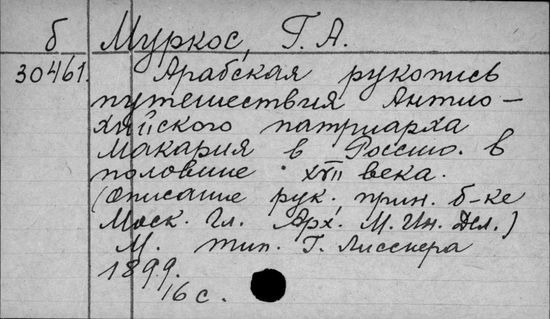 б Муркос, Г. А.
30461. Арабская рукопись
путешествия Антио-
хийского патриарха
Макария в Россию. в
половине XVII века.
(описание рук., прин. б-ке
Моск. Гл. Арх. М. Ин. Дел.)
М. тип. Г. Лисснера
1899.
16 с.